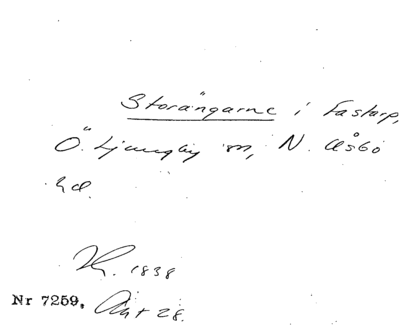 Storängarne i Fastarp,
Ö. Ljungby sn, N. Åsbo
hd.
K. 1838
Nr 7259, Akt 28.